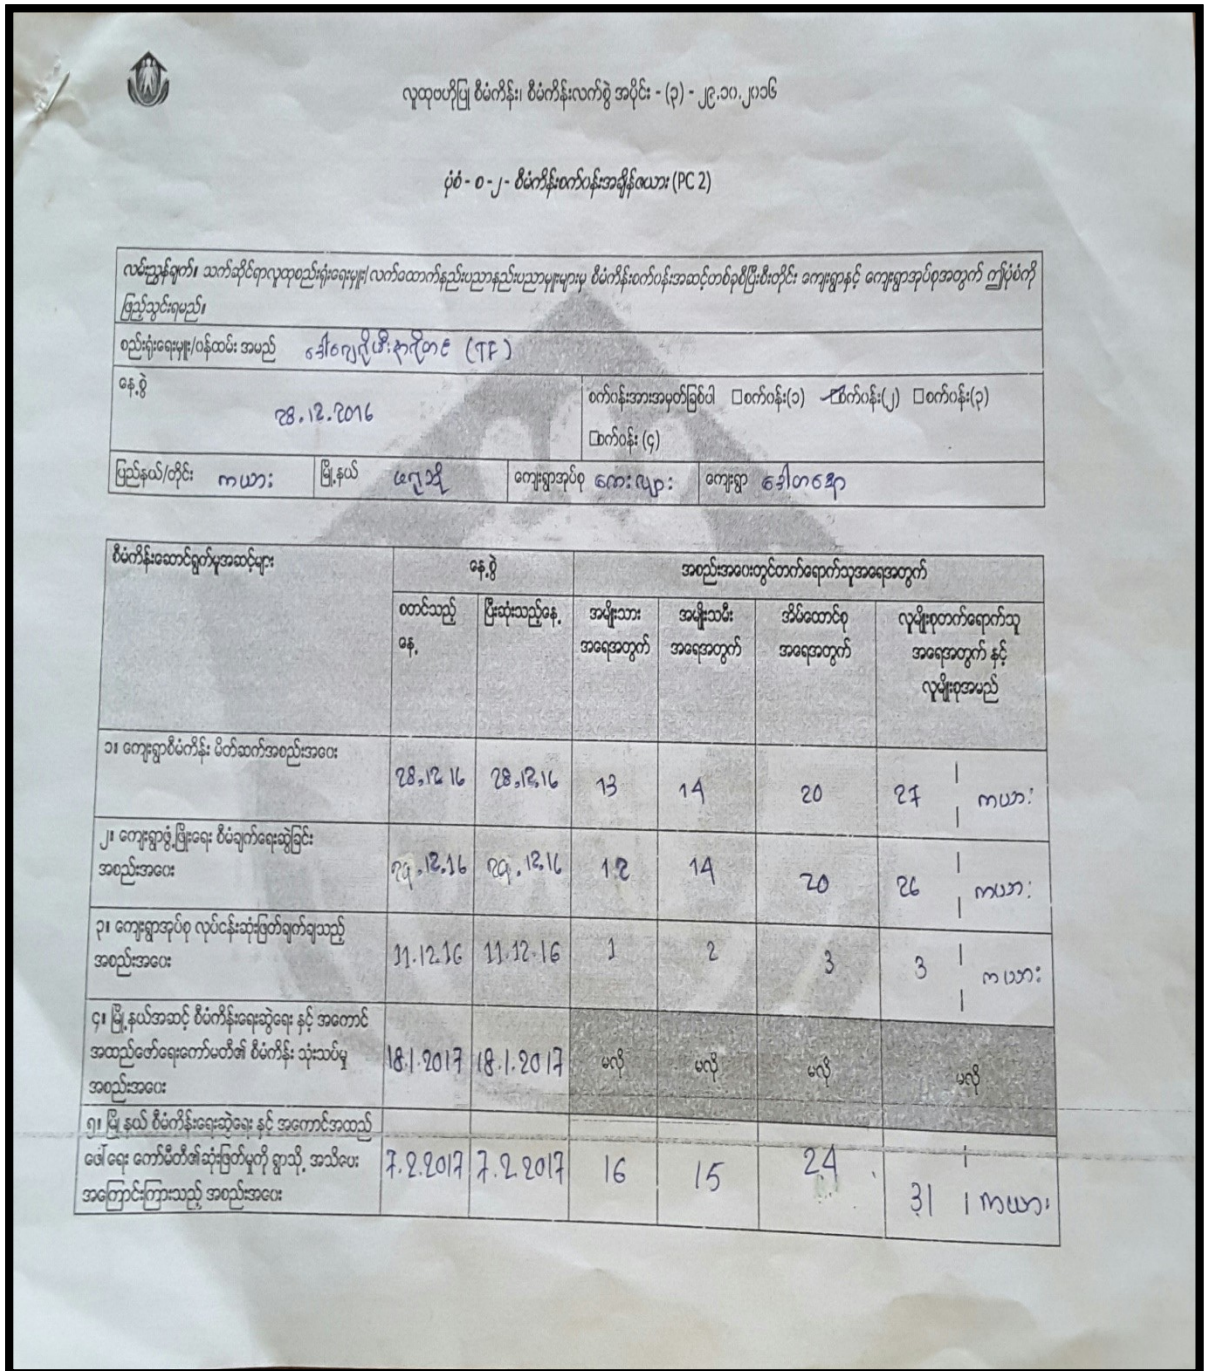 လူထုဗဟိုပြု စီမံကိန်း၊ စီမံကိန်းလက်စွဲ အပိုင်း - (၃) - ၂၉.၁၀.၂၀၁၆
ပုံစံ - စ - ၂ - စီမံကိန်းစက်ဝန်းအချိန်ဇယား (PC 2)
လမ်းညွှန်ချက်။ သက်ဆိုင်ရာလူထုစည်းရုံးရေးမှူး/လက်ထောက်နည်းပညာနည်းပညာမှူးများမှ စီမံကိန်းစက်ဝန်းအဆင့်တစ်ခုစီပြီးစီးတိုင်း ကျေးရွာနှင့် ကျေးရွာအုပ်စုအတွက် ဤပုံစံကို
ဖြည့်သွင်းရမည်။
စည်းရုံးရေးမှူး/ဝန်ထမ်း အမည် (TF)
နေ့စွဲ 28.12.2016
စက်ဝန်းအားအမှတ်ခြစ်ပါ □စက်ဝန်း(၁) ☑စက်ဝန်း(၂) □စက်ဝန်း(၃)
□စက်ဝန်း (၄)
ပြည်နယ်/တိုင်း ကယား မြို့နယ် ဖရူဆို ကျေးရွာအုပ်စု ကေးလျား ကျေးရွာ ဒေါတဆော
စီမံကိန်းဆောင်ရွက်မှုအဆင့်များ နေ့စွဲ အစည်းအဝေးတွင်တက်ရောက်သူအရေအတွက်
စတင်သည့် ပြီးဆုံးသည့်နေ့ အမျိုးသား အမျိုးသမီး အိမ်ထောင်စု လူမျိုးစုတက်ရောက်သူ
နေ့ အရေအတွက် အရေအတွက် အရေအတွက် အရေအတွက် နှင့်
လူမျိုးစုအမည်
၁။ ကျေးရွာစီမံကိန်း မိတ်ဆက်အစည်းအဝေး 28.12.16 28.12.16 13 14 20 27 | ကယား
၂။ ကျေးရွာဖွံ့ဖြိုးရေး စီမံချက်ရေးဆွဲခြင်း
အစည်းအဝေး 29.12.16 29.12.16 12 14 20 26 | ကယား
၃။ ကျေးရွာအုပ်စု လုပ်ငန်းဆုံးဖြတ်ချက်ချသည့်
အစည်းအဝေး 11.12.16 11.12.16 1 2 3 3 | ကယား
၄။ မြို့နယ်အဆင့် စီမံကိန်းရေးဆွဲရေး နှင့် အကောင်
အထည်ဖော်ရေးကော်မတီ၏ စီမံကိန်း သုံးသပ်မှု 18.1.2017 18.1.2017 မလို မလို မလို မလို
အစည်းအဝေး
၅။ မြို့နယ် စီမံကိန်းရေးဆွဲရေး နှင့် အကောင်အထည်
ဖေါ်ရေး ကော်မီတီ၏ဆုံးဖြတ်မှုကို ရွာသို့ အသိပေး 7.2.2017 7.2.2017 16 15 24 31 | ကယား
အကြောင်းကြားသည့် အစည်းအဝေး